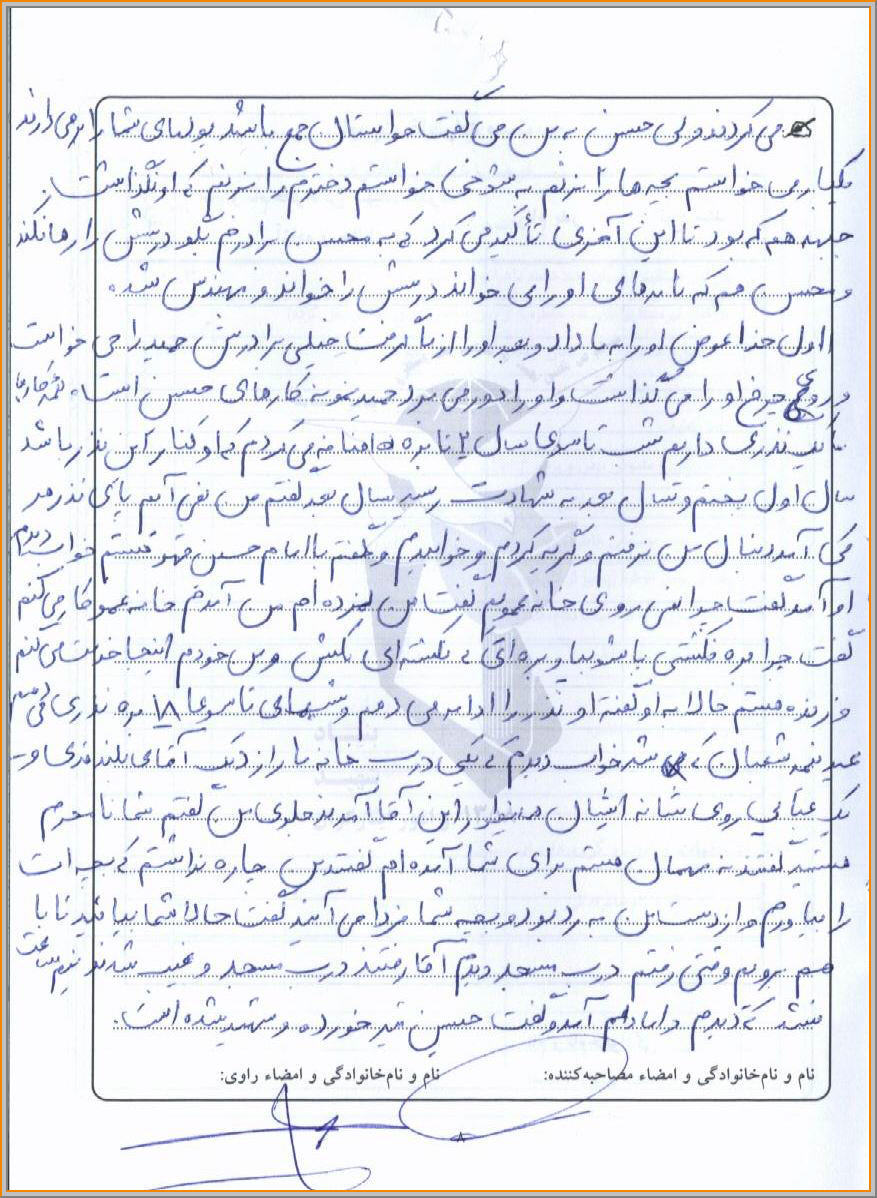 می کردند ولی حسن به من می گفت حواستان جمع باشد پولهای شما را برمی دارند
یکبار می خواستم بچه ها را بزنم به شوخی خواستم دخترم را بزنم که او نگذاشت.
جبهه هم که بود تا این آخری تأکید می کرد که به محسن برادرم بگو درسش را رها نکند
و محسن هم که او را می خواند درسش را خواند و مهندس شد.
اول خدا عوض او را به ما داد و بعد او را از ما گرفت خیلی برادرش حمید را می خواست
چرخ او را می گذاشت و او را دور می برد حمید نمونه کارهای حسن است.
ما یک نذری داریم شب تاسوعا سال ۲ تا بره می کردم که او کنار این نذر باشد
سال اول پختم و سال بعد به شهادت رسید سال بعد گفتم من نمی آیم پای نذر
می آمد دنبال من نرفتم و گریه کردم و خوابیدم و گفتم با امام حسین قهر هستم خواب دیدم
او آمد گفت چرا نمی روی خانه عمویم گفت من زنده ام من آمدم خانه عمو کار می کنم
گفت چرا بره نکشتی پا شو بیا و بره ای که نکشته ای بکش و من خودم اینجا خدمت می کنم
و زنده هستم حالا به گفته او نذر را ادامه می دهم و تاسوعا ۱۸ بره نذری می دهیم
عید نیمه شعبان که شد خواب دیدم که یکی درب خانه ما را زد یک آقای بلند قدی و
یک عبایی روی شانه ایشان بود این آقا آمدند جلوی من گفتم شما نامحرم
هستید گفتند نه مهمان هستم برای شما آمده ام گفتند من چاره نداشتم که بچه ات
را بیاورم و از دست من به رد بود و بچه شما فردا می آیند گفت حالا شما بیائید تا با
هم برویم وقتی رفتم درب مسجد دیدم آقا رفتند درب مسجد و غیب شدند نیم ساعت
نشد که دیدم دامادم آمد و گفت حسین تیر خورده و شهید شده است.
نام و نام‌خانوادگی و امضاء مصاحبه‌کننده: نام و نام‌خانوادگی و امضاء راوی:
۸